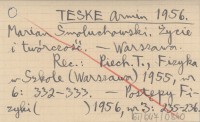 TESKE Armin 1956.
Marian Smoluchowski. Życie
i twórczość. — Warszawa.
Rec.: Piech. T., Fizyka
w Szkole (Warszawa) 1955, nr
6: 332-333. — Postępy Fi-
zyki ( ) 1956, nr 3: 235-236.